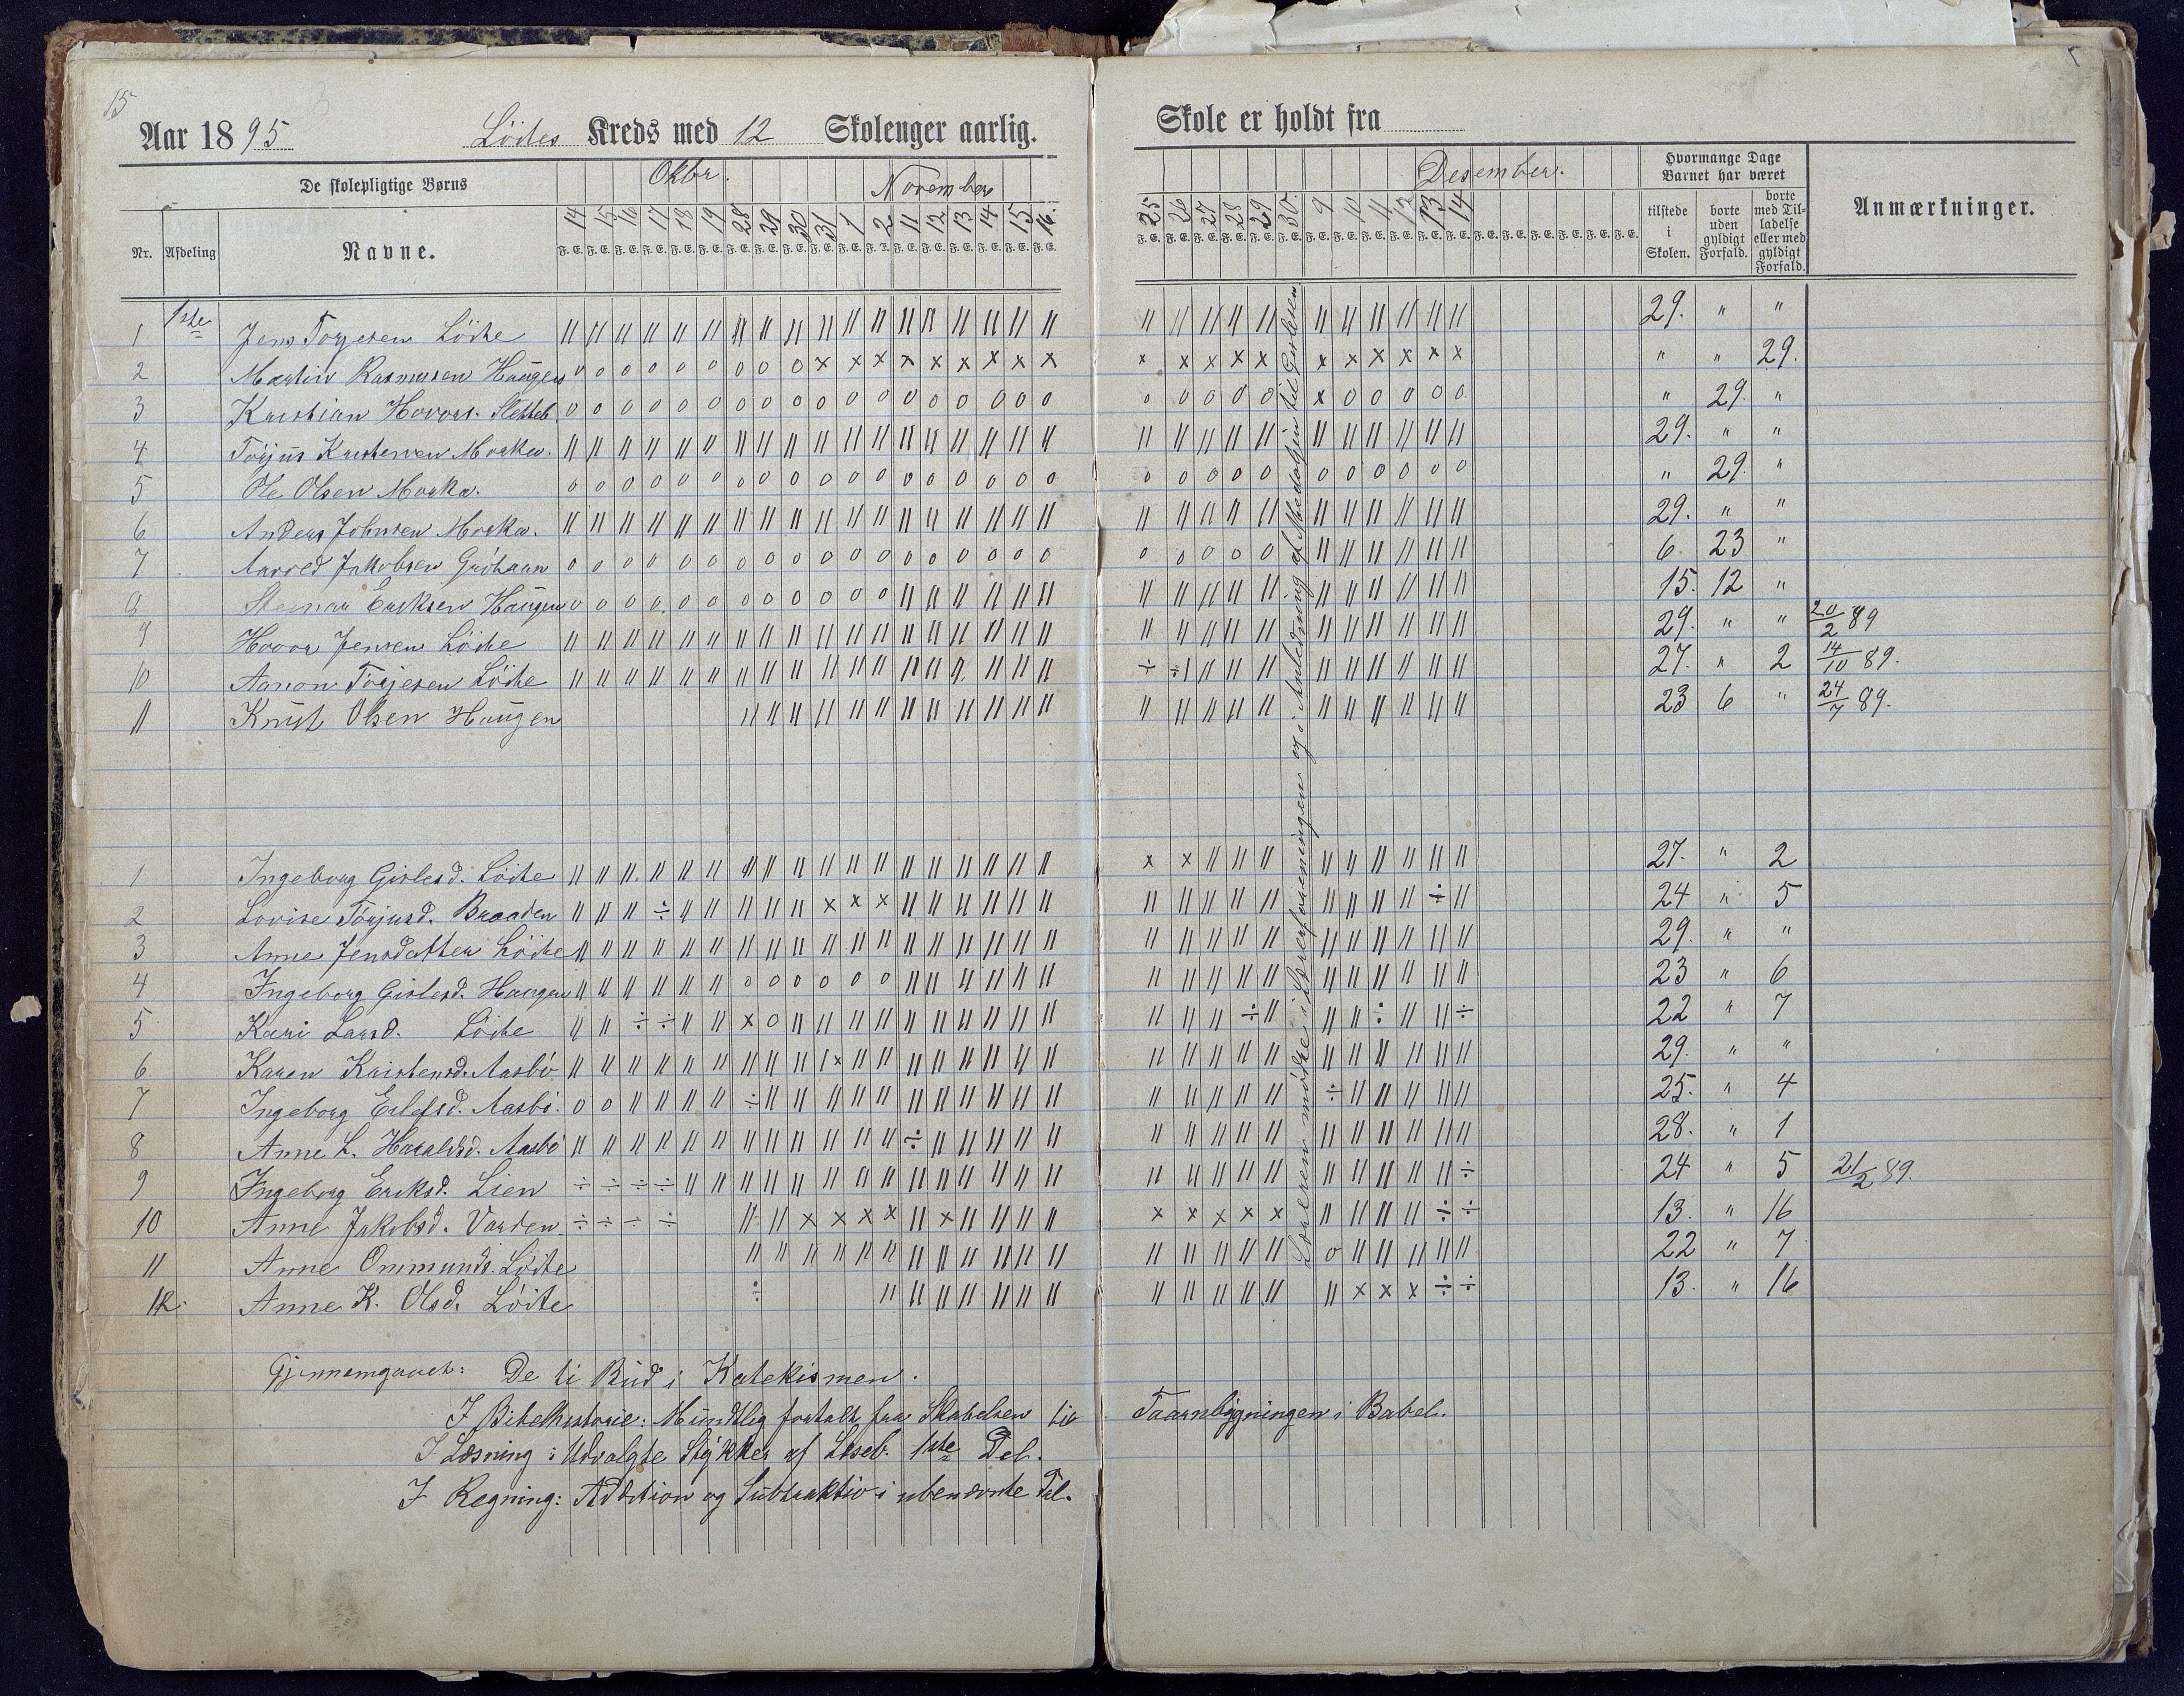 15
Aar 1895 Löites Kreds med 12 Skolenger aarlig. Skole er holdt fra
De skolepligtige Børns Oktbr. November Desember. Hvormange Dage Barnet har været
Nr. Afdeling Navne. 14 15 16 17 18 19 28 29 30 31 1 2 11 12 13 14 15 16 25 26 27 28 29 30 9 10 11 12 13 14 tilstede i Skolen. borte uden gyldigt Forfald. borte med Tilladelse eller med gyldigt Forfald. Anmærkninger.
F. E. F. E. F. E. F. E. F. E. F. E. F. E. F. E. F. E. F. E. F. E. F. E. F. E. F. E. F. E. F. E. F. E. F. E. F. E. F. E. F. E. F. E. F. E. F. E. F. E. F. E. F. E. F. E. F. E. F. E. F. E. F. E. F. E. F. E. F. E. F. E.
1ste
1 Jens Torjesen Löite 29. " "
2 Martin Rasmusen Haugen " " 29.
3 Kristian Hovors. Sletteb. " 29. "
4 Törjus Kristensen Morka. 29. " "
5 Ole Olsen Morka. " 29. "
6 Anders Johnsen Morka. 29. " "
7 Aarred Jakobsen 6 23 "
8 Steinar Eriksen Haugen 15. 12 "
9 Hovor Jensen Löite 29. " " 20/2 89
10 Aanon Törjesen Löite 27. " 2 14/10 89.
11 Knut Olsen Haugen 23 6 " 24/7 89.
Læreren mödte i Lærerforeningen og i Anledning af Medaljen til
1 Ingeborg Gislesd. Löite 27. " 2
2 Lovise Törjusd. Braaten 24 " 5
3 Anne Jensdatter Löite 29. " "
4 Ingeborg Gislesd. Haugen 23 " 6
5 Kari Larsd. Löite 22 " 7
6 Karen Kristensd. Aasbö 29. " "
7 Ingeborg Erlefsd. Aasbö. 25. " 4
8 Anne L. Haraldsd. Aasbö 28. " 1
9 Ingeborg Eriksd. Lien 24 " 5 21/2 89.
10 Anne Jakobsd. Varden 13. " 16
11 Anne Ommunds. Löite 22 " 7
12. Anne K. Olsd. Löite 13. " 16
Gjennemgaaet: De ti Bud i Katekismen.
I Bibelhistorie: Mundtlig fortalt fra Skabelsen til Taarnbygningen i Babel.
I Læsning: Udvalgte Stykker af Læseb. 1ste Del.
I Regning: Addition og Subtraktion i ubenævnte Tal.